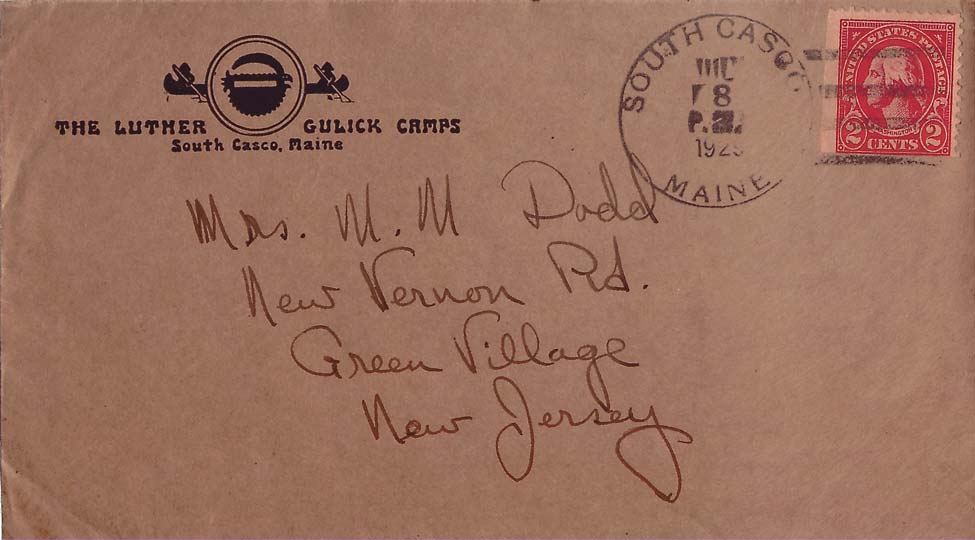 THE LUTHER GULICK CAMPS
South Casco, Maine
SOUTH CASCO
8
P.M.
MAINE
UNITED STATES POSTAGE
WASHINGTON
2 CENTS 2
Mrs. M. M Dodd
New Vernon Rd.
Green Village
New Jersey